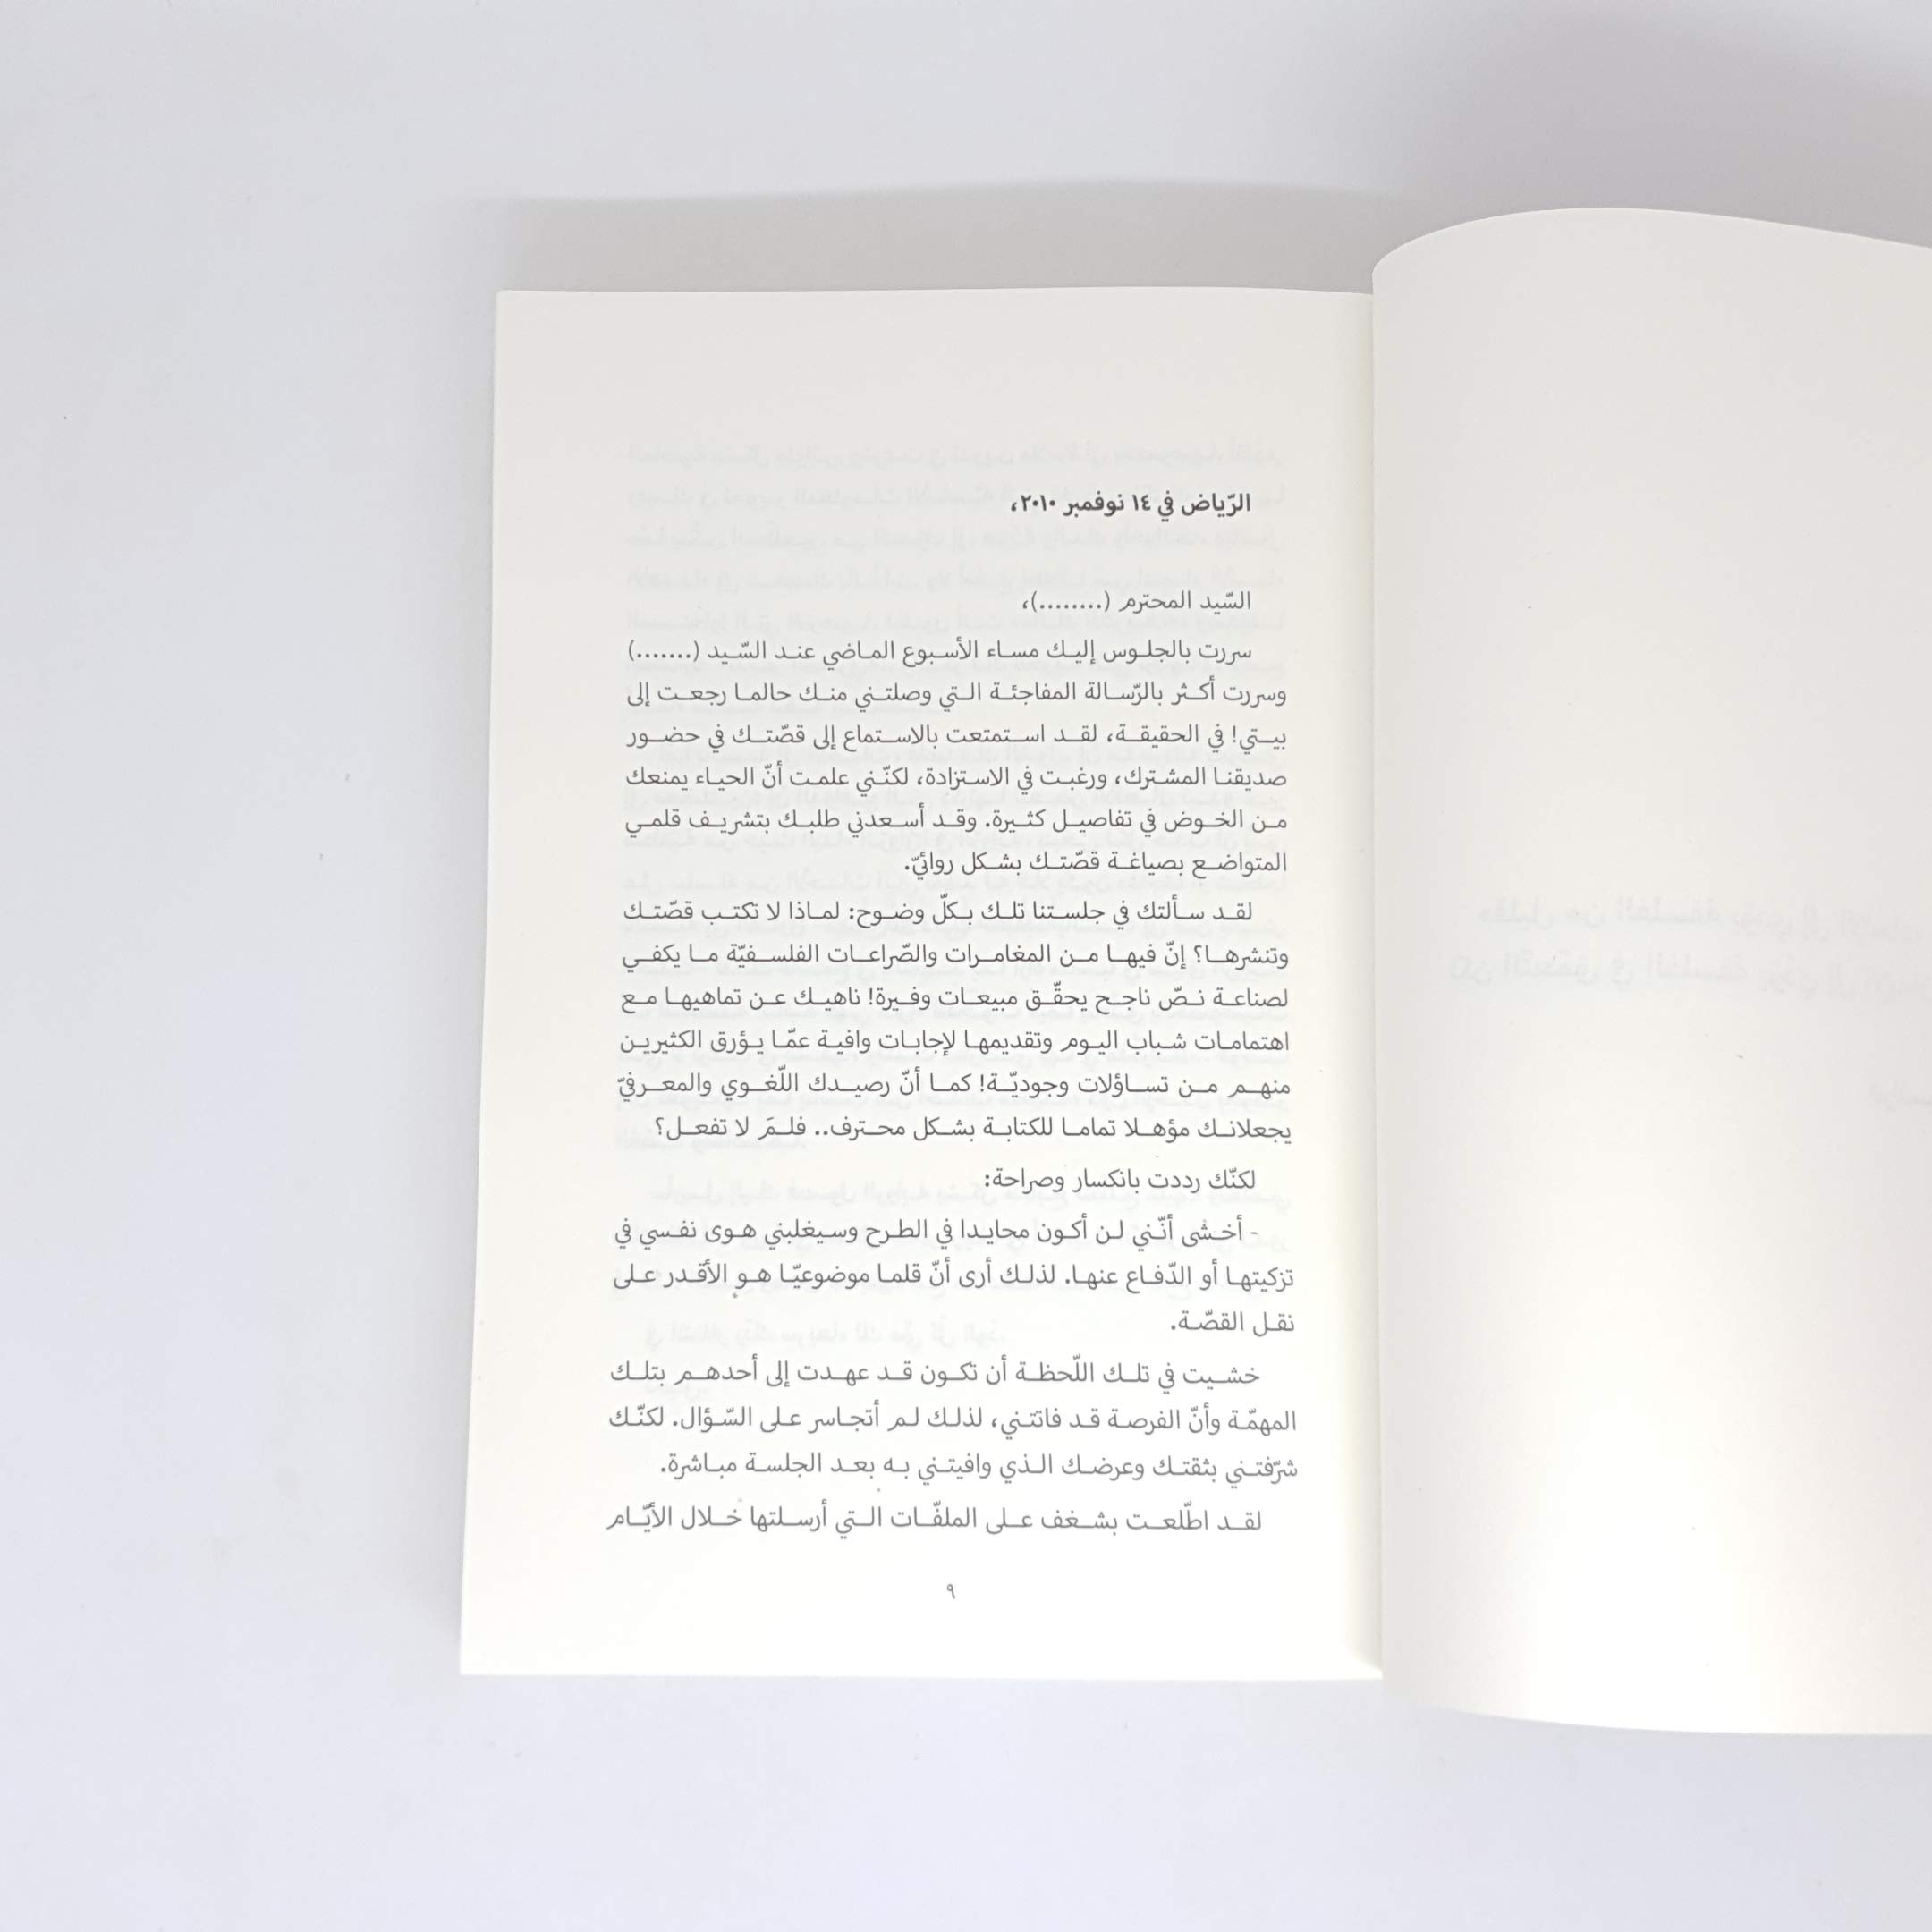 الرّياض في ١٤ نوفمبر ٢٠١٠،
السّيد المحترم (........)،
سررت بالجلوس إليك مساء الأسبوع الماضي عند السّيد (.......)
وسررت أكثر بالرّسالة المفاجئة التي وصلتني منك حالما رجعت إلى
بيتي! في الحقيقة، لقد استمتعت بالاستماع إلى قصّتك في حضور
صديقنا المشترك، ورغبت في الاستزادة، لكنّني علمت أنّ الحياء يمنعك
من الخوض في تفاصيل كثيرة. وقد أسعدني طلبك بتشريف قلمي
المتواضع بصياغة قصّتك بشكل روائيّ.
لقد سألتك في جلستنا تلك بكلّ وضوح: لماذا لا تكتب قصّتك
وتنشرها؟ إنّ فيها من المغامرات والصّراعات الفلسفيّة ما يكفي
لصناعة نصّ ناجح يحقّق مبيعات وفيرة! ناهيك عن تماهيها مع
اهتمامات شباب اليوم وتقديمها لإجابات وافية عمّا يؤرق الكثيرين
منهم من تساؤلات وجوديّة! كما أنّ رصيدك اللّغوي والمعرفيّ
يجعلانك مؤهلا تماما للكتابة بشكل محترف.. فلمَ لا تفعل؟
لكنّك رددت بانكسار وصراحة:
- أخشى أنّني لن أكون محايدا في الطرح وسيغلبني هوى نفسي في
تزكيتها أو الدّفاع عنها. لذلك أرى أنّ قلما موضوعيّا هو الأقدر على
نقل القصّة.
خشيت في تلك اللّحظة أن تكون قد عهدت إلى أحدهم بتلك
المهمّة وأنّ الفرصة قد فاتتني، لذلك لم أتجاسر على السّؤال. لكنّك
شرّفتني بثقتك وعرضك الذي وافيتني به بعد الجلسة مباشرة.
لقد اطّلعت بشغف على الملفّات التي أرسلتها خلال الأيّام
٩